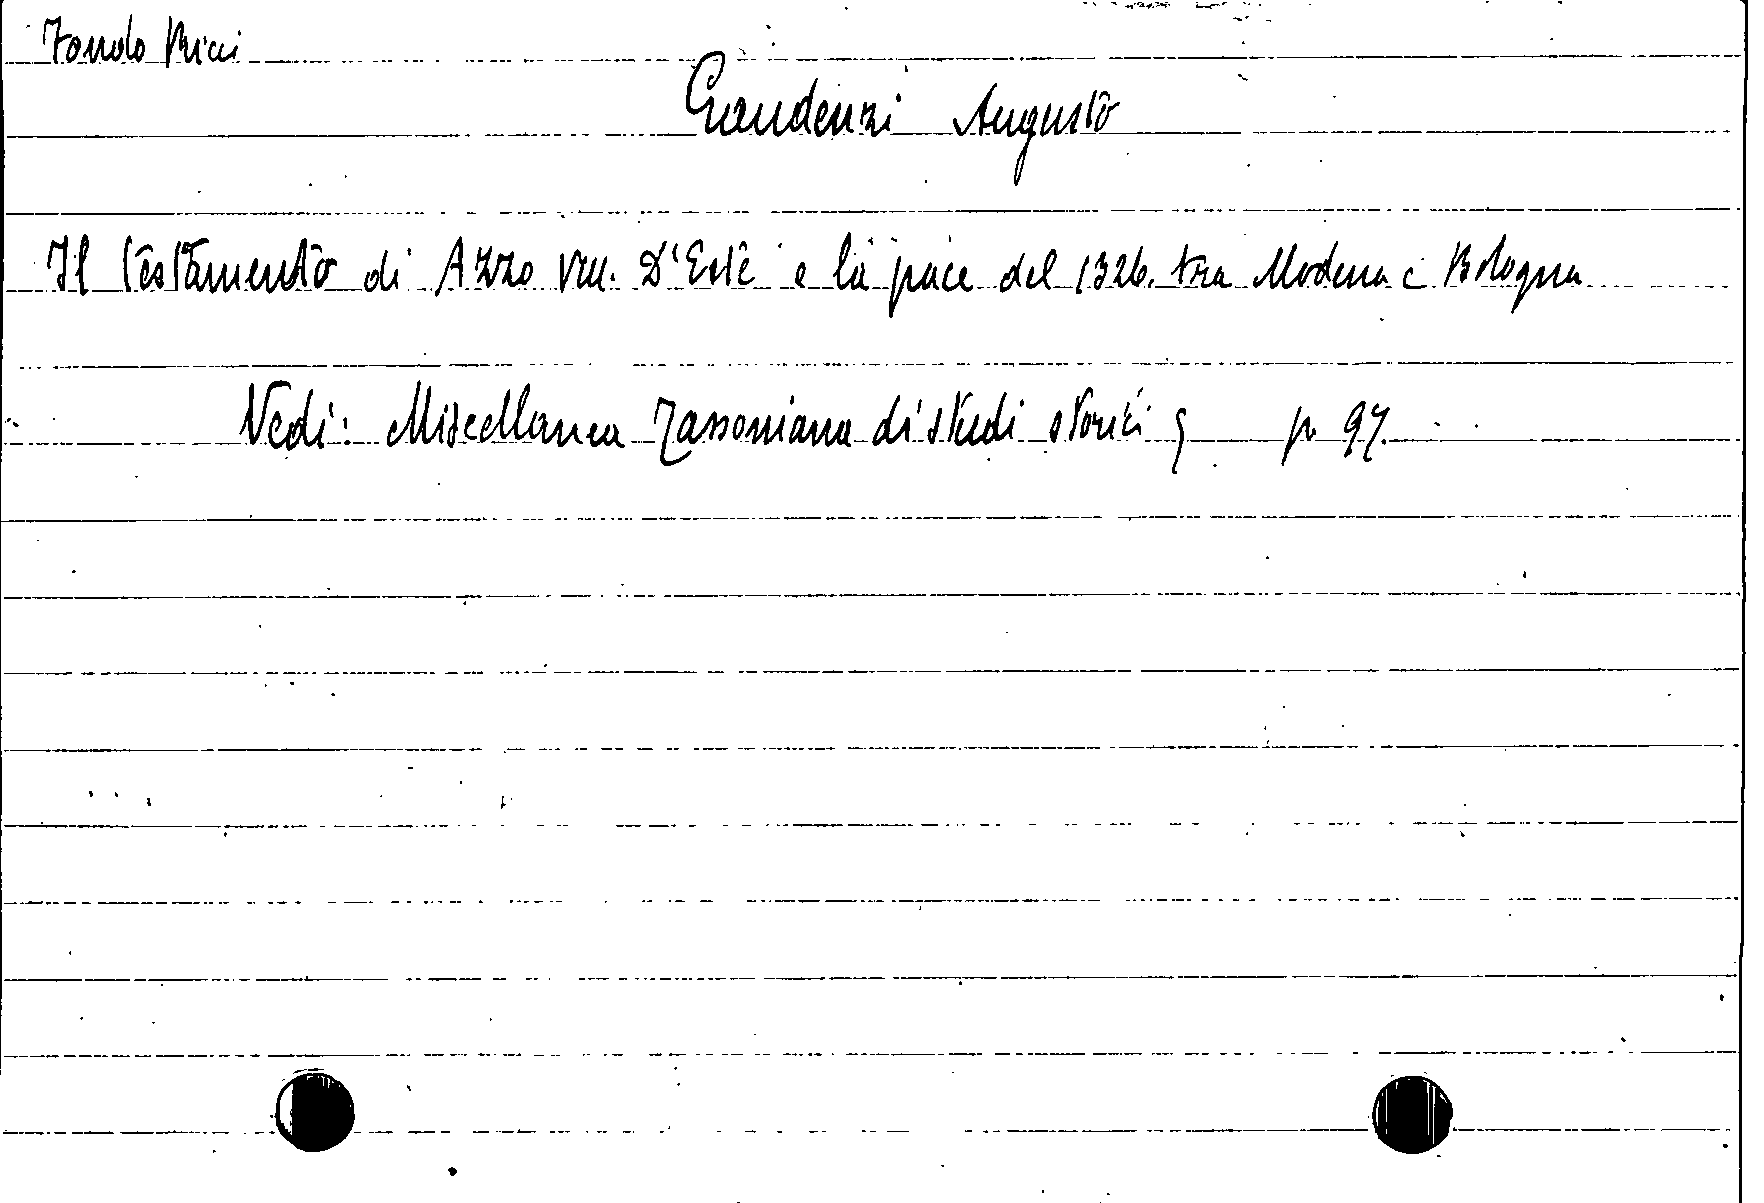 Fondo Ricci
Gaudenzi Augusto
Il testamento di Azzo VIII. D'Este e la pace del 1326. tra Modena e Bologna
Vedi: Miscellanea Tassoniana di studi storici p 97.